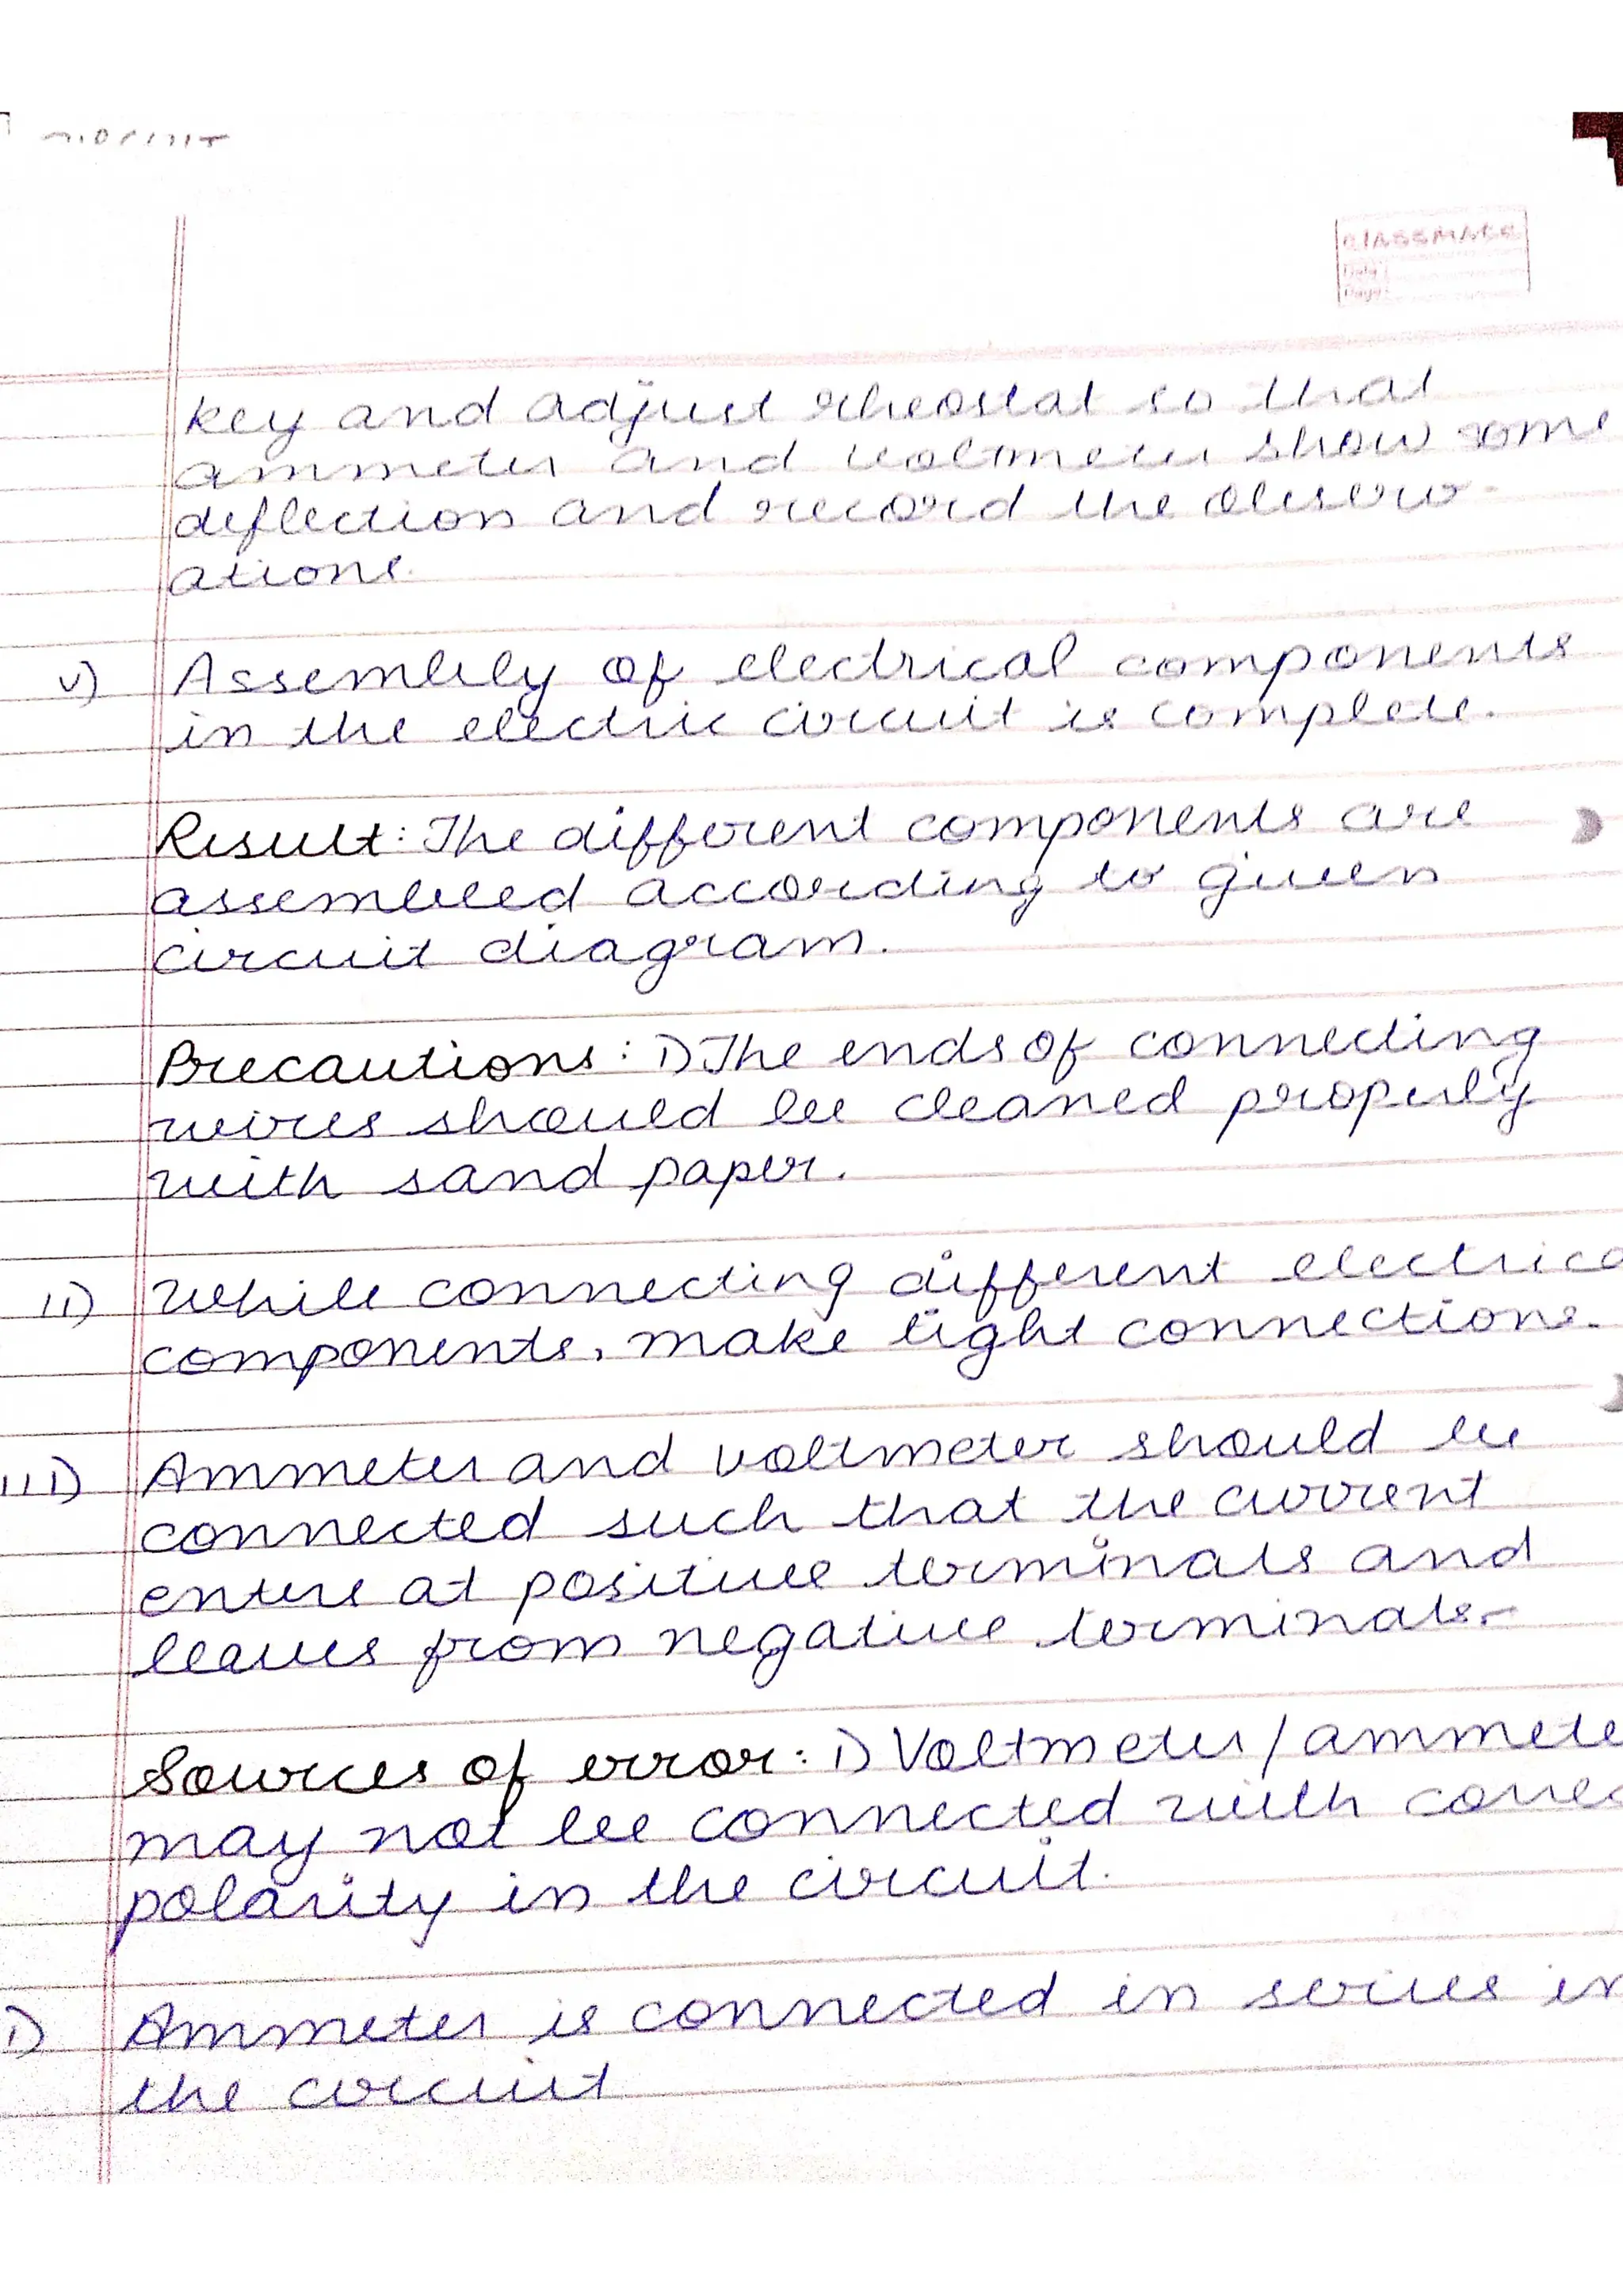 CLASSMATE
Date
Page
key and adjust rheostat so that
ammeter and voltmeter show some
deflection and record the observ-
ations.
v) Assembly of electrical components
in the electric circuit is complete.
Result: The different components are
assembled according to given
circuit diagram.
Precautions: i) The ends of connecting
wires should be cleaned properly
with sand paper.
ii) While connecting different electrica
components, make tight connections.
iii) Ammeter and voltmeter should be
connected such that the current
enters at positive terminals and
leaves from negative terminals.
Sources of error: i) Voltmeter/ammete
may not be connected with correc
polarity in the circuit.
i) Ammeter is connected in series in
the circuit